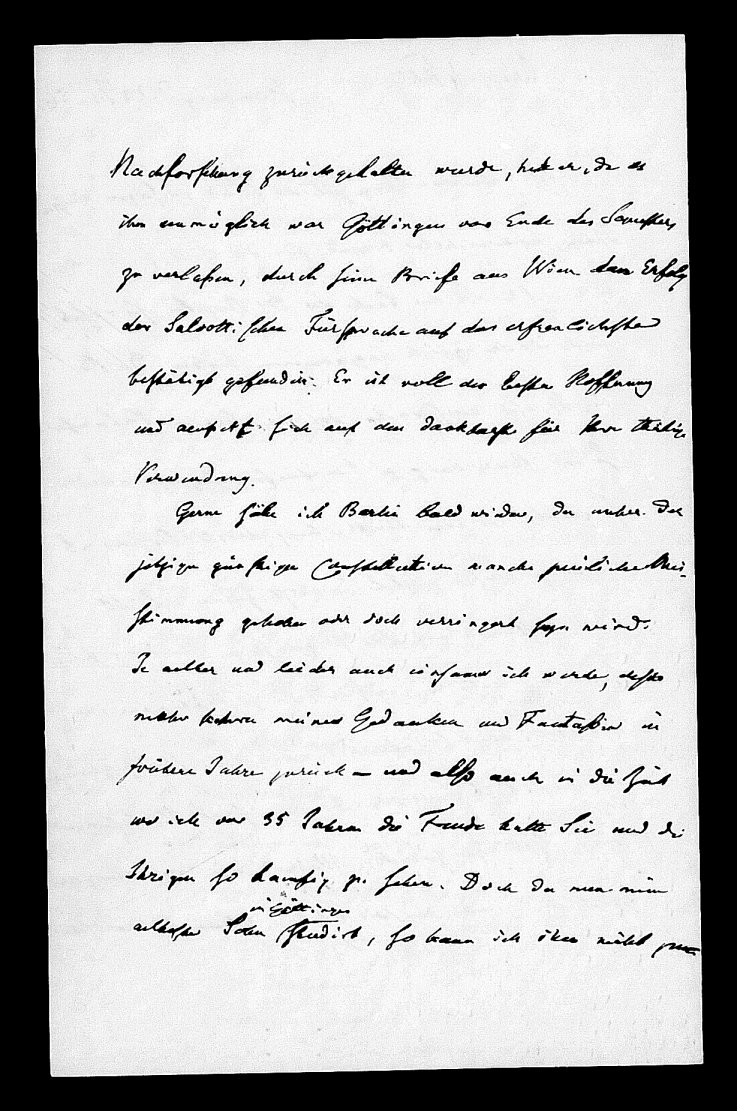 Nachforschung zurückgehalten wurde, hat er, da es
ihm unmöglich war Göttingen vor Ende des Semesters
zu verlaßen, durch seine Briefe aus Wien den Erfolg
der Salvottischen Fürsprache auf das erfreulichste
bestätigt gefunden. Er ist voll der besten Hoffnung
und aeußert sich auf das dankbarste für Ihre thätige
Verwendung.
Gerne sähe ich Berlin bald wieder, da unter der
jetzigen günstigen Constellation manche peinliche Mis-
stimmung gehoben oder doch verringert seyn wird.
Je aelter und leider auch einsamer ich werde, desto
mehr kehren meine Gedanken und Fantasien in
frühere Jahre zurück – und also auch in die Zeit
wo ich vor 35 Jahren die Freude hatte Sie und die
Ihrigen so haeufig zu sehen. Doch da nun mein
in Göttingen
aeltester Sohn studirt, so kann ich ihn nicht